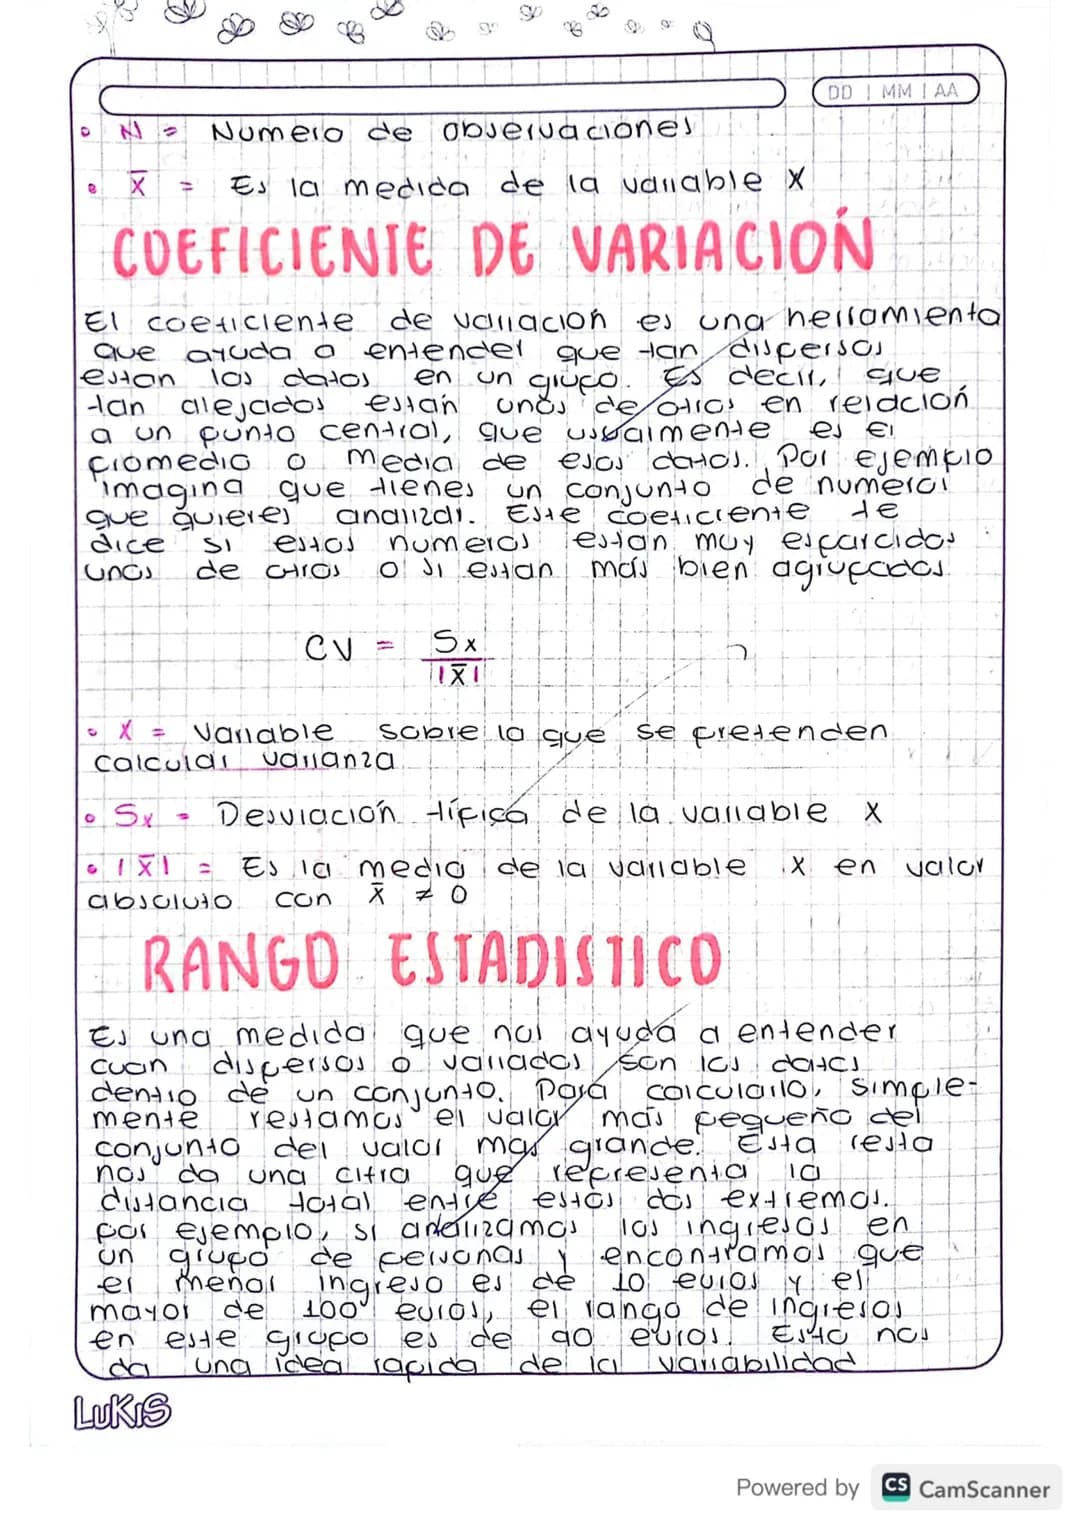 DD | MM | AA
• N = Numero de observaciones
• X̅ = Es la medida de la variable X
COEFICIENTE DE VARIACIÓN
El coeficiente de variación es una herramienta
que ayuda a entender que tan dispersos
estan los datos en un grupo. Es decir, que
tan alejados están unos de otros en relación
a un punto central, que usualmente es el
promedio o media de esos datos. Por ejemplo
imagina que tienes un conjunto de numeros
que quieres analizar. Este coeficiente te
dice si estos numeros estan muy esparcidos
unos de otros o si estan más bien agrupados
CV = Sx
|X̅|
• X = Variable sobre la que se pretenden
calcular varianza
• Sx = Desviación típica de la variable X
• |X̅| = Es la media de la variable X en valor
absoluto con X̅ ≠ 0
RANGO ESTADISTICO
Es una medida que nos ayuda a entender
cuan dispersos o variados son los datos
dentro de un conjunto. Para calcularlo, simple-
mente restamos el valor más pequeño del
conjunto del valor mas grande. Esta resta
nos da una cifra que representa la
distancia total entre estos dos extremos.
por ejemplo, si analizamos los ingresos en
un grupo de personas y encontramos que
el menor ingreso es de 10 euros y el
mayor de 100 euros, el rango de ingresos
en este grupo es de 90 euros. Esto nos
da una idea rapida de la variabilidad
LUKIS
Powered by CS CamScanner